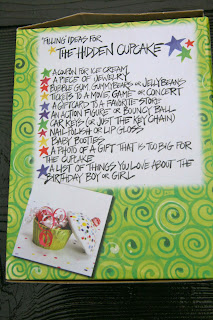 FILLING IDEAS FOR
THE HIDDEN CUPCAKE
A COUPON FOR ICE CREAM
A PIECE OF JEWELRY
BUBBLE GUM, GUMMYBEARS OR JELLYBEANS
TICKETS TO A MOVIE, GAME OR CONCERT
A GIFTCARD TO A FAVORITE STORE
AN ACTION FIGURE OR BOUNCY BALL
CAR KEYS (OR JUST THE KEY CHAIN)
NAIL POLISH OR LIP GLOSS
BABY BOOTIES
A PHOTO OF A GIFT THAT IS TOO BIG FOR
THE CUPCAKE
A LIST OF THINGS YOU LOVE ABOUT THE
BIRTHDAY BOY OR GIRL